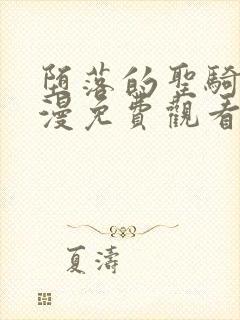 堕落的聖騎
漫免費觀看
夏濤